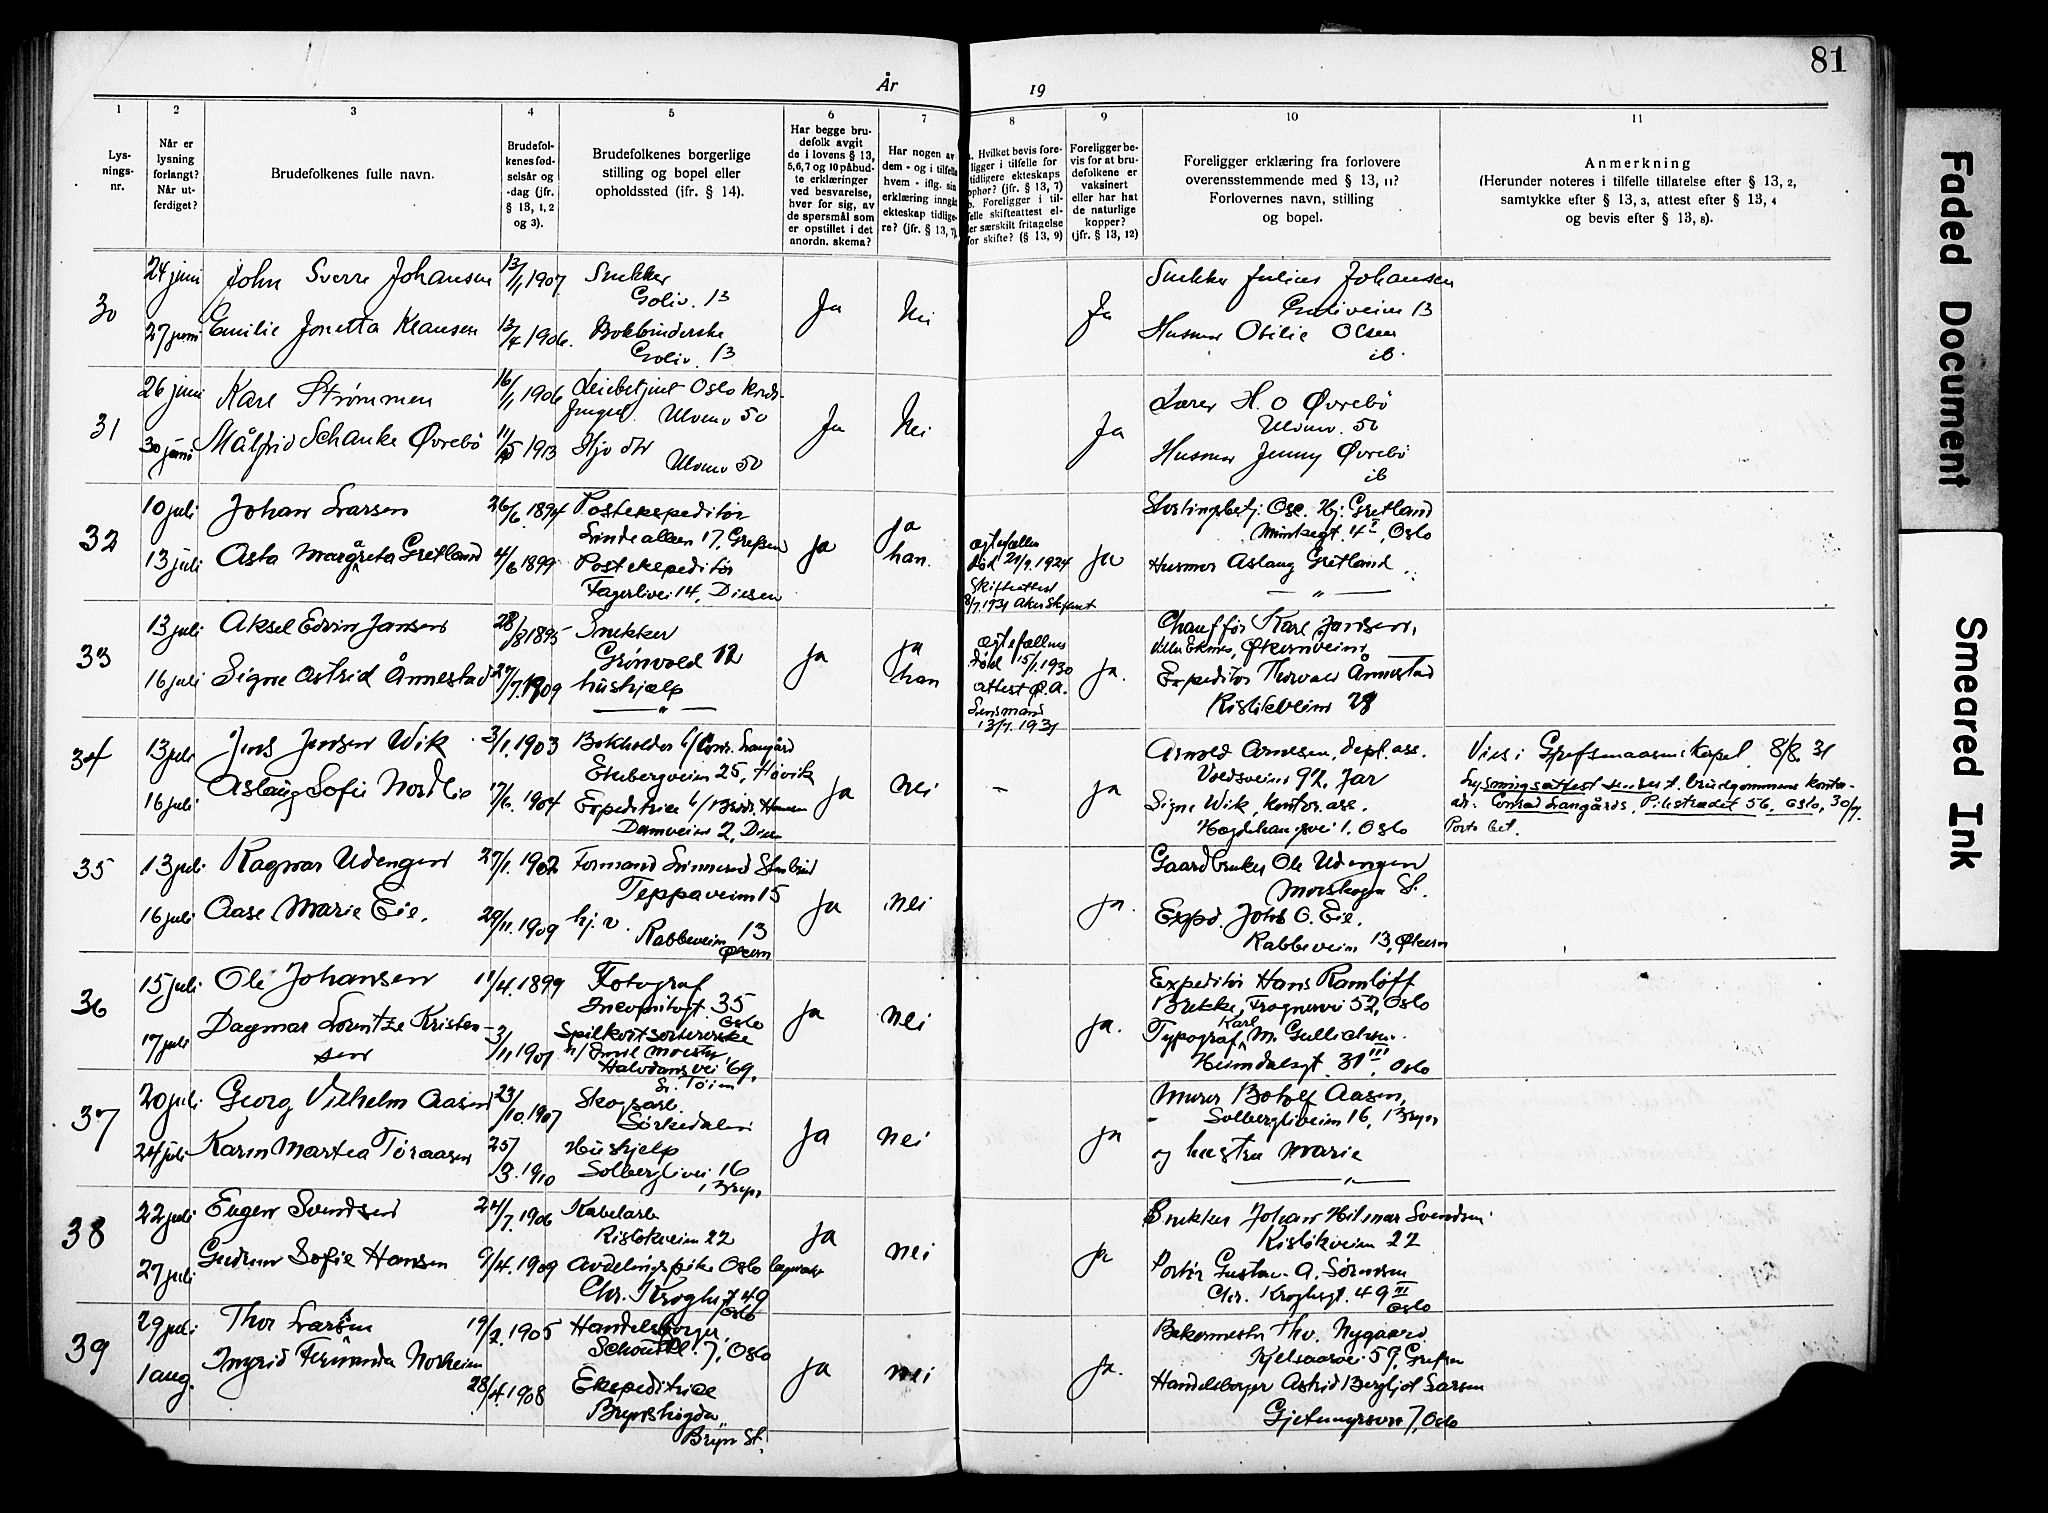 81
År 19
1 2 3 4 5 6 7 8 9 10 11
Lys-
nings-
nr.
Når er
lysning
forlangt?
Når ut-
ferdiget?
Brudefolkenes fulle navn.
Brudefol-
kenes fød-
selsår og
-dag (jfr.
§ 13, 1, 2
og 3).
Brudefolkenes borgerlige
stilling og bopel eller
opholdssted (jfr. § 14).
Har begge bru-
defolk avgit
de i lovens § 13,
5,6,7 og 10 påbud-
te erklæringer
ved besvarelse,
hver for sig, av
de spørsmål som
er opstillet i det
anordn. skema?
Har nogen av
dem - og i tilfelle
hvem - iflg. sin
erklæring inngått
ekteskap tidlige-
re? (jfr. § 13, 7).
a. Hvilket bevis fore-
ligger i tilfelle for
tidligere ekteskaps
ophør? (jfr. § 13, 7)
b. Foreligger i til-
felle skifteattest el-
ler særskilt fritagelse
for skifte? (§ 13, 9)
Foreligger be-
vis for at bru-
defolkene er
vaksinert
eller har hat
de naturlige
kopper?
(jfr. § 13, 12)
Foreligger erklæring fra forlovere
overensstemmende med § 13, 11?
Forlovernes navn, stilling
og bopel.
Anmerkning
(Herunder noteres i tilfelle tillatelse efter § 13, 2,
samtykke efter § 13, 3, attest efter § 13, 4
og bevis efter § 13, 8).
30
24 juni John Sverre Johansen 13/1 1907 Snekker
Goliv. 13
Ja Nei Ja
Snekker Julius Johansen
Goliveien 13
27 juni Emilie Jonetta Klausen 13/4 1906. Bokbinderske
Goliv. 13
Husmor Otilie Olsen
ib.
31
26 juni Karl Strømmen 16/1 1906
Ulvenv 50
Ja Nei Ja
Lærer H. O Øvrebö
Ulvenv. 50
30 juni Målfrid Schanke Øvrebö 11/5 1913 Hjv dtr
Ulvenv 50
Husmor Jenny Øvrebö
ib
32
10 juli Johan Larsen 26/6. 1894 Postekspeditör
Lindealleen 17, Grefsen
ja ja
han.
ektefællen
död 21/9. 1924
Skifteattest
8/7. 1931 Aker Skifteret
ja
Stortingsbetj. Osc. Hj. Gretland
Munkegt. 4 I, Oslo
13 juli Asta Margreta Gretland 4/6 1899 Postekspeditör
Fagerlivei 14, Disen
Husmor Aslaug Gretland
— " —
33
13 juli Aksel Edvin Jansen 28/8 1895 Snekker
Grönvold 12
ja ja
han
ektefællen
död 15/1. 1930
attest Ø. A.
Lensmand
13/7. 1931
ja.
Chaufför Karl Jansen,
Villa Eknes, Økernveien
16 juli Signe Astrid Ånnestad 27/7. 1909 hushjælp
— " —
Expeditör Thorvald Ånnestad
Risløkveien 28
34
13 juli Jens Jensen Wik 3/1. 1903 Bokholder b/ Conr. Langård
Ekebergveien 25, Høvik
Ja nei – ja
Arnold Arnesen, dept. ass.
Voldsveien 92, Jar
Vies i Grefsenaasens kapel 8/8. 31
16 juli Aslaug Sofie Nordlie 17/6. 1904 Expeditrice b/ Brdr. Hansen
Damveien 2, Disen
Signe Wik, kontorass.
Hegdehaugsvei 1. Oslo
Lysningsattest sendes t. brudgommens kontor-
adr. Conrad Langårds, Pilestrædet 56, Oslo, 30/7.
Porto bet.
35
13 juli Ragnar Udengen 27/1. 1902 Formand
Teppaveien 15
Ja nei ja.
Gaardbruker Ole Udengen
Morskogen St.
16 juli Aase Marie Eie. 29/11. 1909 hj. v.
Rabbeveien 13
Økern
Exped. Johs O. Eie.
Rabbeveien 13, Økern
36
15 juli Ole Johansen 11/4. 1899 Fotograf
Incognitogt. 35
Oslo
ja nei ja.
Expeditör Hans Ramløff
Brekke, Frognervei 52, Oslo
17 juli Dagmar Lorentze Kristen-
sen 3/11 1907 Spilkortsortererske
h/ Emil Moestue
Halvdansvei 69.
Ø. Töien
Typograf Karl M. Gullichsen.
Heimdalsgt. 31 III, Oslo
37
20 juli Georg Vilhelm Aasen 23/10. 1907 Skogsarb.
Sörkedalen
Ja nei ja
Murer Botolf Aasen,
Solbergliveien 16, Bryn
24 juli Karin Martea Töraasen 25/3. 1910 Hushjelp
Solberglivei 16
Bryn
og hustru Marie
— " —
38
22 juli Eugen Svendsen 24/7. 1906 Kabelarb
Risløkveien 22
Ja nei ja
Snekker Johan Hilmar Svendsen
Risløkveien 22
27 juli Gudrun Sofie Hansen 9/4. 1909 Avdelingspike Oslo
Chr. Kroghsgt 49
Oslo
Portör Gustav A. Sörensen
Chr. Kroghsgt. 49 II
Oslo
39
29 juli Thor Larsen 19/2. 1905 Handelsborger
Schous Pl. 7, Oslo
ja nei ja.
Bakermester Thv. Nygaard
Kjelsaasvei 59, Grefsen
1 aug. Ingrid Fernanda Norheim 28/4. 1908 Ekspeditrice
Brynshögda,
Bryn St.
Handelsborger Astrid Bergljot Larsen
Gjetemyrsvn 7, Oslo
Faded Document
Smeared Ink